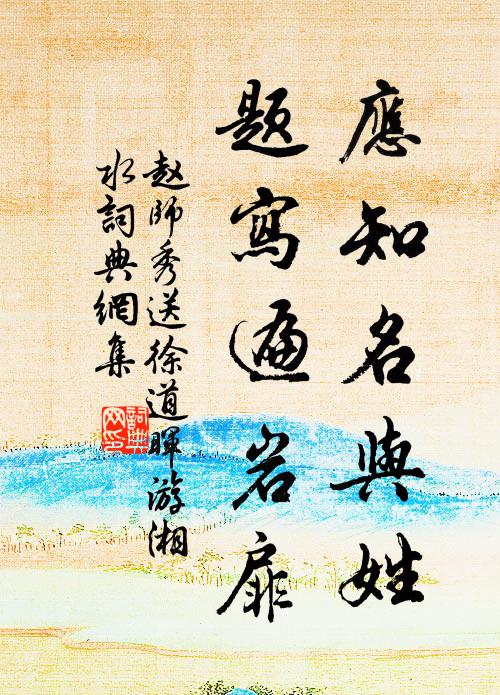 應知名與姓
題寫遍岩扉
赵師秀送徐道暉游湘
水詞典網集
詞典
网印